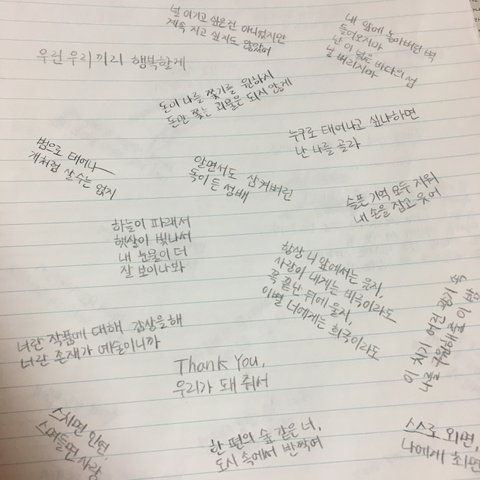 널 이기고 싶은건 아니었지만
계속 지고 싶지도 않았어
내 앞에 놓아버린 벽
들어오지마
난 이 넓은 바다의 섬
널 버리지마
우린 우리끼리 행복할게
돈이 나를 쫓기를 원하지
돈만 쫓는 괴물은 되지 않게
누구로 태어나고 싶냐하면
난 나를 골라
범으로 태어나
개처럼 살수는 없지
알면서도 삼켜버린
독이 든 성배
슬픈 기억 모두 지워
내 손을 잡고 웃어
하늘이 파래서
햇살이 빛나서
내 눈물이 더
잘 보이나봐
항상 니 앞에서는 웃지,
사랑이 내게는 비극이라도
꼭 끝난 뒤에 울지,
이별 너에게는 희극이라도
너란 작품에 대해 감상을해
너란 존재가 예술이니까
이 치기 어린 광기 속
나를 구원해줄 이 밤
Thank You,
우리가 돼 줘서
스치면 인연,
스며들면 사랑
한 편의 숲 같은 너,
도시 속에서 반짝여
스스로 외면,
나에게 최면